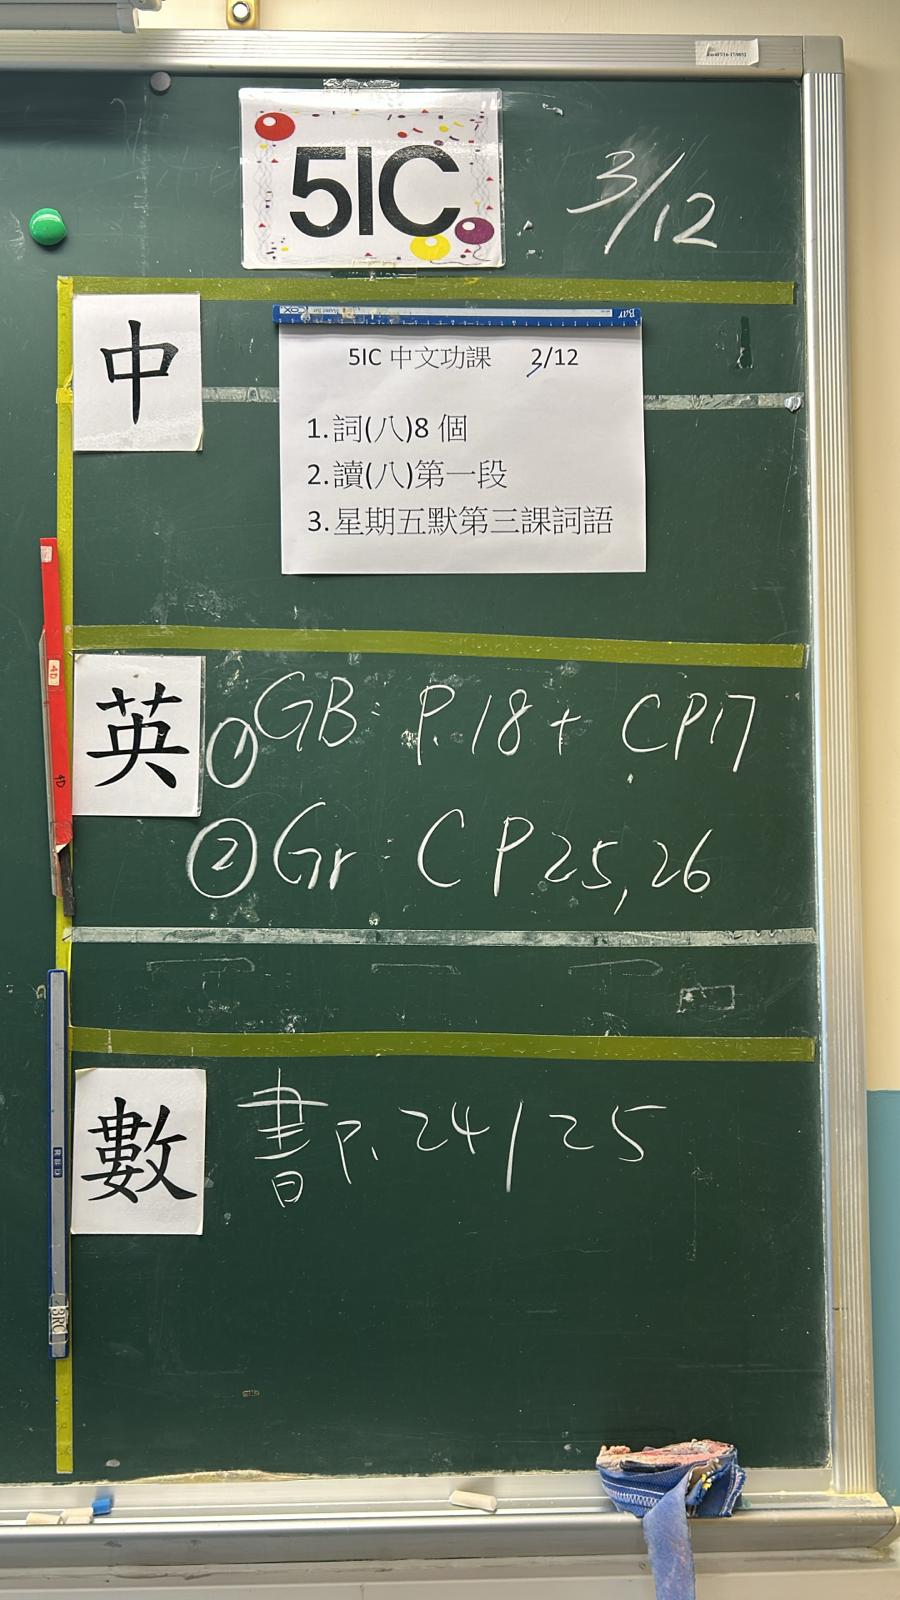 5IC
3/12
中
5IC 中文功課 2/12
1. 詞(八)8 個
2. 讀(八)第一段
3. 星期五默第三課詞語
英
① GB: P.18 + CP17
② Gr: CP25,26
數
書 P. 24/25
4D
4D
3RC